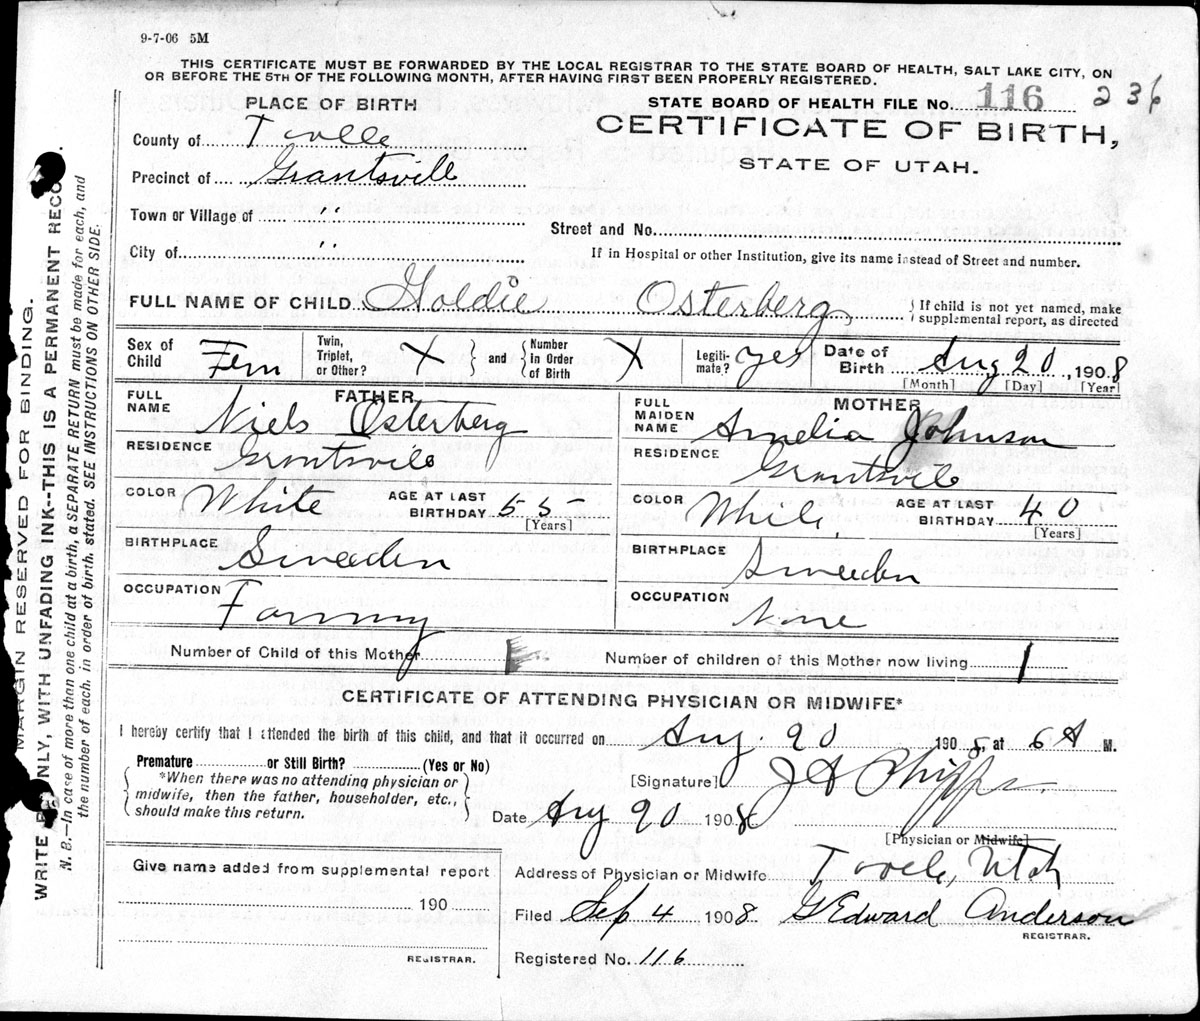 9-7-06 5M
THIS CERTIFICATE MUST BE FORWARDED BY THE LOCAL REGISTRAR TO THE STATE BOARD OF HEALTH, SALT LAKE CITY, ON
OR BEFORE THE 5TH OF THE FOLLOWING MONTH, AFTER HAVING FIRST BEEN PROPERLY REGISTERED.
PLACE OF BIRTH
STATE BOARD OF HEALTH FILE No. 116 236
CERTIFICATE OF BIRTH,
STATE OF UTAH.
County of Tooele
Precinct of Grantsville
Town or Village of "
Street and No.
City of "
If in Hospital or other Institution, give its name instead of Street and number.
FULL NAME OF CHILD. Goldie Osterberg,
If child is not yet named, make
supplemental report, as directed
Sex of Child Fem
Twin, Triplet, or Other? X and Number in Order of Birth X
Legitimate? yes
Date of Birth Aug 20, 1908
[Month] [Day] [Year]
FATHER
FULL NAME Niels Osterberg
RESIDENCE Grantsville
COLOR White AGE AT LAST BIRTHDAY 55 [Years]
BIRTHPLACE Sweeden
OCCUPATION Farming
MOTHER
FULL MAIDEN NAME Amelia Johnson
RESIDENCE Grantsville
COLOR White AGE AT LAST BIRTHDAY 40 [Years]
BIRTHPLACE Sweeden
OCCUPATION None
Number of Child of this Mother 1 Number of children of this Mother now living 1
CERTIFICATE OF ATTENDING PHYSICIAN OR MIDWIFE*
I hereby certify that I attended the birth of this child, and that it occurred on Aug. 20 1908, at 6 A M.
Premature or Still Birth? (Yes or No)
*When there was no attending physician or
midwife, then the father, householder, etc.,
should make this return.
[Signature] J A Phipps
Date Aug 20 1908
[Physician or Midwife]
Address of Physician or Midwife Tooele, Utah
Filed Sep 4 1908 G Edward Anderson
REGISTRAR.
Registered No. 116
Give name added from supplemental report
190
REGISTRAR.
MARGIN RESERVED FOR BINDING.
WRITE ONLY, WITH UNFADING INK--THIS IS A PERMANENT
N. B.—In case of more than one child at a birth, a SEPARATE RETURN must be made for each, and
the number of each, in order of birth, stated. SEE INSTRUCTIONS ON OTHER SIDE.